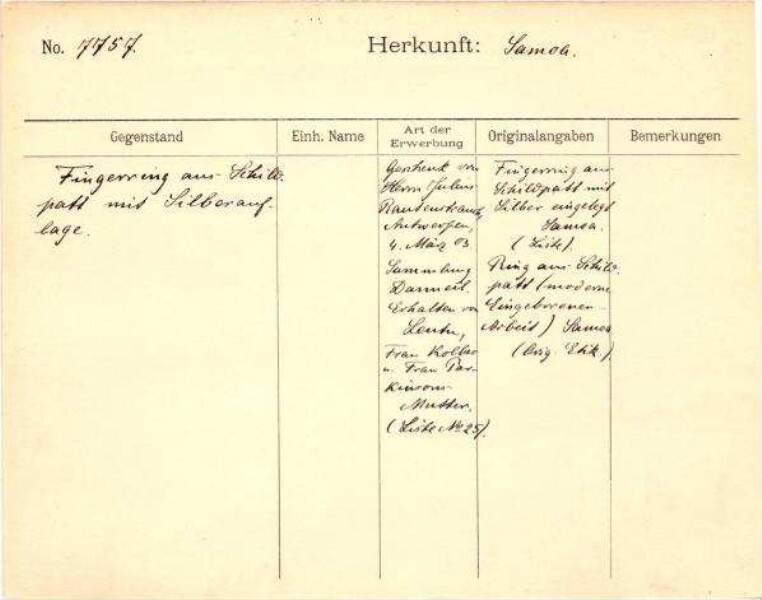 No. 7757.
Herkunft: Samoa.
Gegenstand
Einh. Name
Art der
Erwerbung
Originalangaben
Bemerkungen
Fingerring aus Schild-
patt mit Silberauf-
lage.
Geschenk von
Herrn Julius
Rautenstrauch,
Antwerpen,
4. März 03
Sammlung
Erhalten von
Frau Kolbe
u. Frau Par-
kinsons
Mutter.
(Liste No 25).
Fingerring aus
Schildpatt mit
Silber eingelegt
Samoa.
(Liste).
Ring aus Schild-
patt (moderne
Eingeborenen-
Arbeit) Samoa
(Orig. Etik.)